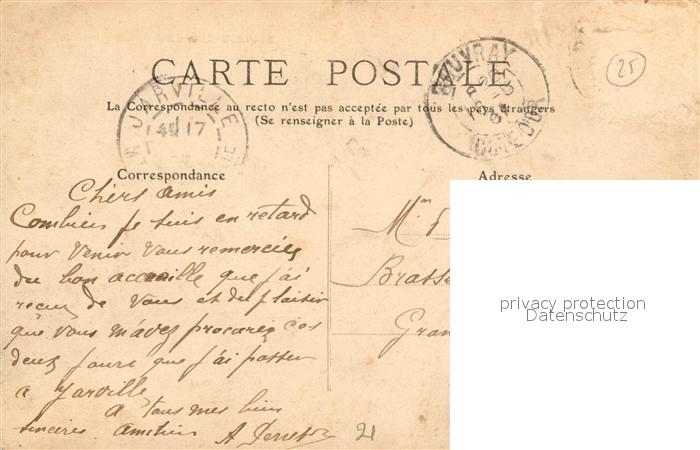 CARTE POSTALE
La Correspondance au recto n'est pas acceptée par tous les pays étrangers
(Se renseigner à la Poste)
JARVILLE
25
Correspondance
Adresse
Chers amis
Combien je suis en retard
pour venir vous remerciez
du bon accueille que j'ai
reçu de vous et du plaisir
que vous m'avez procurez ces
deux jours que j'ai passer
a Jarville
A tous mes bien
sinceres amitiés
Mme
Brasse
Gran
21
privacy protection
Datenschutz